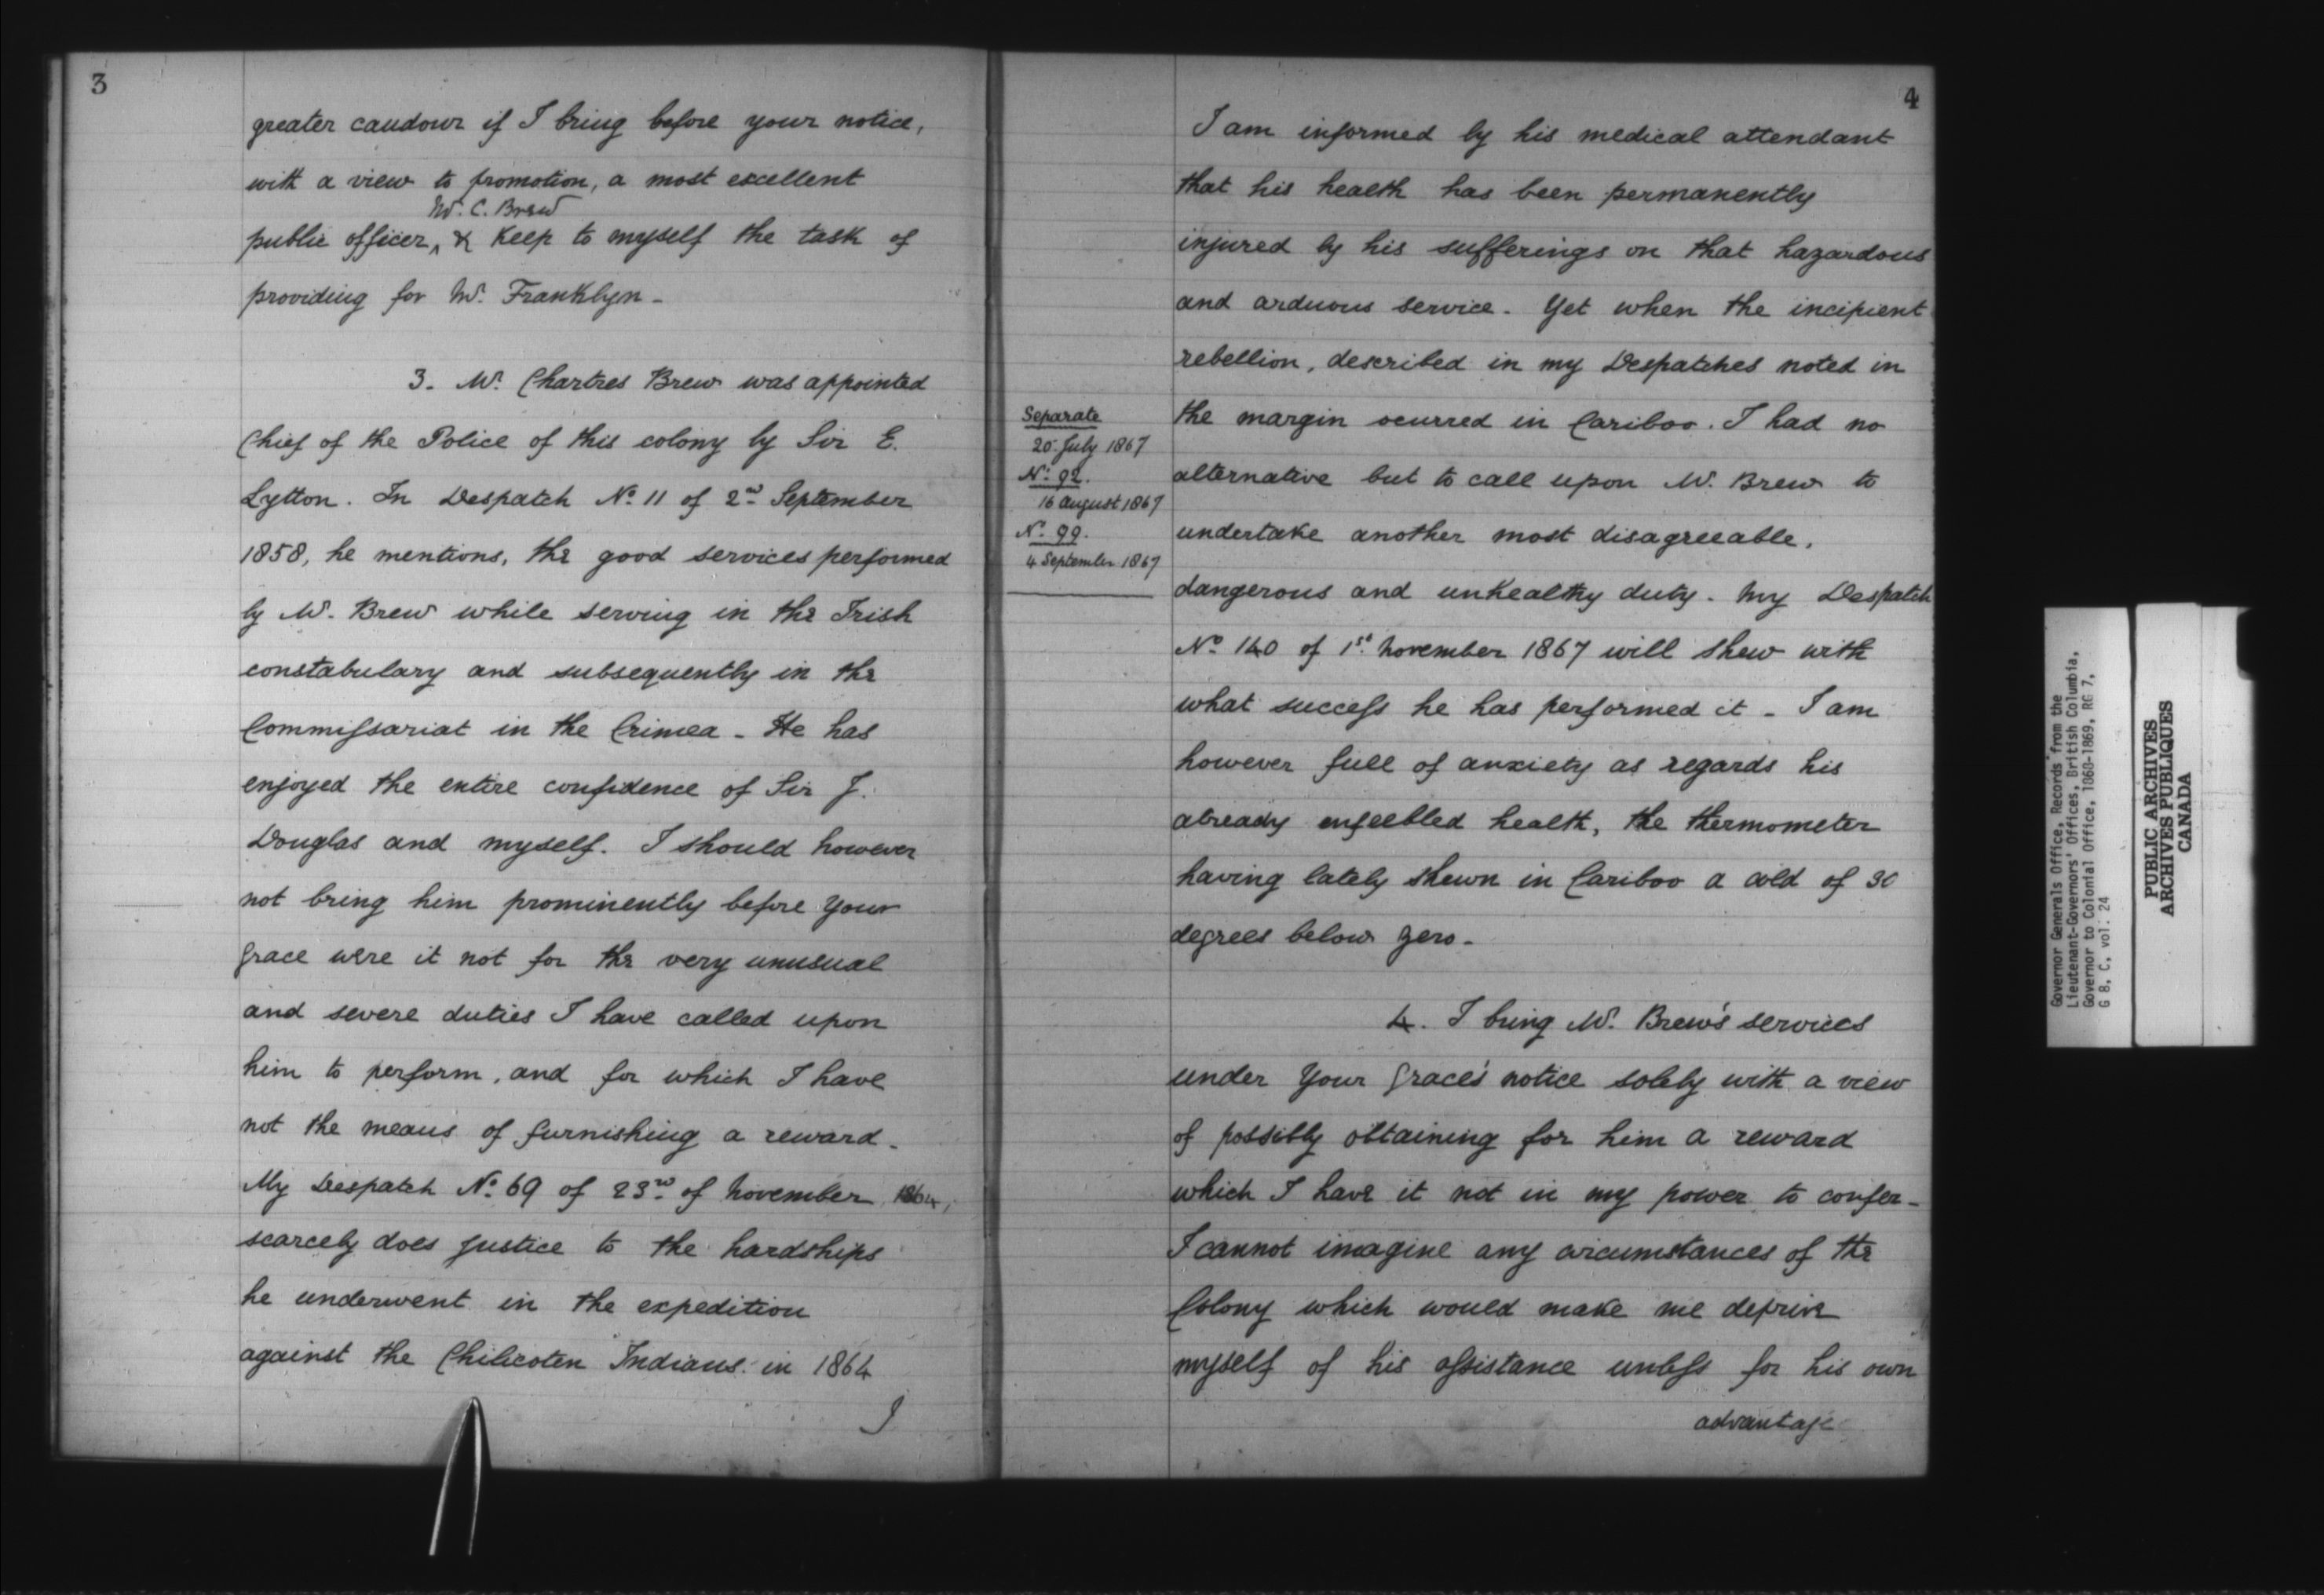 3
greater candour if I bring before your notice,
with a view to promotion, a most excellent
Mr. C. Brew
public officer, & keep to myself the task of
providing for Mr. Franklyn -
3. Mr. Chartres Brew was appointed
Chief of the Police of this colony by Sir E.
Lytton. In Despatch No. 11 of 2nd September
1858, he mentions, the good services performed
by Mr. Brew while serving in the Irish
constabulary and subsequently in the
Commissariat in the Crimea - He has
enjoyed the entire confidence of Sir J.
Douglas and myself. I should however
not bring him prominently before Your
Grace were it not for the very unusual
and severe duties I have called upon
him to perform, and for which I have
not the means of furnishing a reward -
My Despatch No. 69 of 23rd of November, 1864,
scarcely does justice to the hardships
he underwent in the expedition
against the Chilicoten Indians in 1864
I
4
I am informed by his medical attendant
that his health has been permanently
injured by his sufferings on that hazardous
and arduous service. Yet when the incipient
rebellion, described in my Despatches noted in
Separate
20 July 1867
No. 92.
16 August 1867
No. 99.
4 September 1867
the margin ocurred in Cariboo. I had no
alternative but to call upon Mr. Brew to
undertake another most disagreeable,
dangerous and unhealthy duty. My Despatch
No. 140 of 1st November 1867 will shew with
what success he has performed it - I am
however full of anxiety as regards his
already enfeebled health, the thermometer
having lately shewn in Cariboo a cold of 30
degrees below zero -
4. I bring Mr. Brew's services
under Your Grace's notice solely with a view
of possibly obtaining for him a reward
which I have it not in my power to confer -
I cannot imagine any circumstances of the
Colony which would make me deprive
myself of his assistance unless for his own
advantage
Governor Generals Office, Records from the
Lieutenant-Governors' Offices, British Columbia,
Governor to Colonial Office, 1868-1869, RG 7,
G 8, C, vol. 24
PUBLIC ARCHIVES
ARCHIVES PUBLIQUES
CANADA